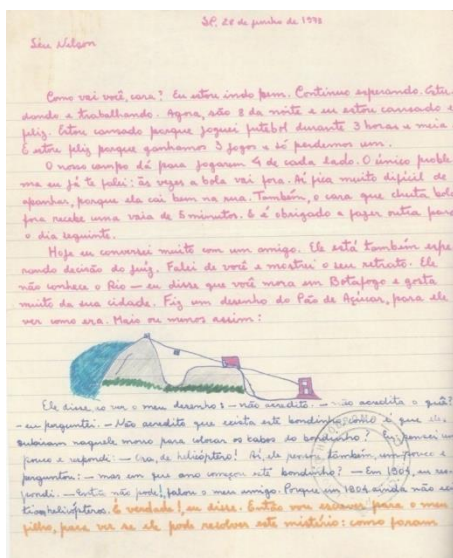 SP, 28 de junho de 1970
Seu Nelson
Como vai você, cara? Eu estou indo bem. Continuo esperando. Estu
dando e trabalhando. Agora, são 8 da noite e eu estou cansado e
feliz. Estou cansado porque joguei futebol durante 3 horas e meia.
E estou feliz porque ganhamos 3 jogos e só perdemos um.
O nosso campo dá para jogarem 4 de cada lado. O único proble
ma eu já te falei: às vezes a bola vai fora. Aí fica muito difícil de
apanhar, porque ela cai bem na rua. Também, o cara que chuta bola
fora recebe uma vaia de 5 minutos. E é obrigado a fazer outra para
o dia seguinte.
Hoje eu conversei muito com um amigo. Ele está também espe
rando decisão do juiz. Falei de você e mostrei o seu retrato. Ele
não conhece o Rio — eu disse que você mora em Botafogo e gosta
muito da sua cidade. Fiz um desenho do Pão de Açúcar, para ele
ver como era. Mais ou menos assim:
Ele disse, ao ver o meu desenho: — não acredito. — não acredita o quê?
— eu perguntei. — Não acredito que exista este bondinho. Como é que eles
subiram naquele morro para colocar os cabos do bondinho? Eu pensei um
pouco e respondi: — Ora, de helicóptero! Aí, ele pensou também, um pouco e
perguntou: — mas em que ano começou este bondinho? — Em 1904, eu res
pondi. — Então não pode!, falou o meu amigo. Porque em 1904 ainda não
tinha helicópteros. É verdade!, eu disse. Então vou escrever para o meu
filho, para ver se ele pode resolver este mistério: como foram